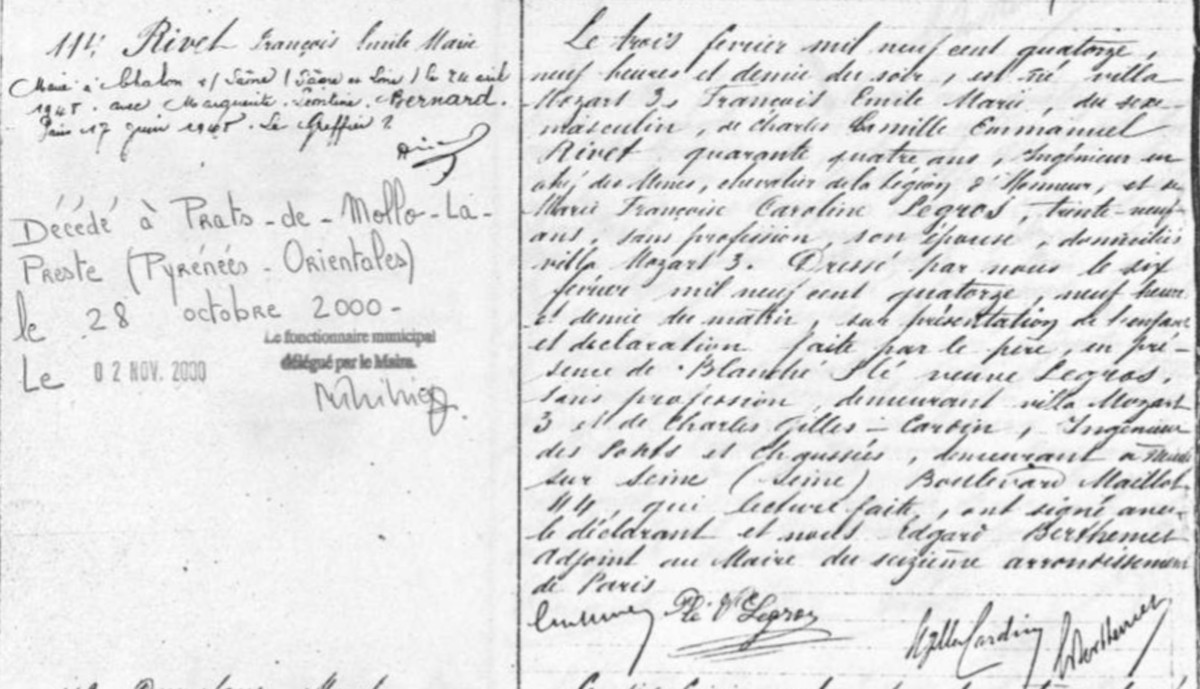 114 Rivet François Emile Marie
Marié à Chalon s/ Saône (Saône et Loire) le 24 avril
1945 avec Marguerite Léontine Bernard.
Paris 17 juin 1945. Le Greffier
Décédé à Prats-de-Mollo-La-
Preste (Pyrénées-Orientales)
le 28 octobre 2000-
Le fonctionnaire municipal
délégué par le Maire.
Le 02 NOV. 2000
Le trois fevrier mil neuf cent quatorze,
neuf heures et demie du soir, est né, villa
Mozart 3, François Emile Marie, du sexe
masculin, de Charles Camille Emmanuel
Rivet quarante quatre ans, Ingénieur en
chef des Mines, chevalier de la légion d'Honneur, et de
Marie Françoise Caroline Legros, trente-neuf
ans, sans profession, son épouse, domiciliés
villa Mozart 3. Dressé par nous le six
fevrier mil neuf cent quatorze, neuf heures
et demie du matin, sur présentation de l'enfant
et declaration faite par le père, en pré-
sence de Blanche Plé veuve Legros,
sans profession, demeurant villa Mozart
3 et de Charles Gilles-Cardin, Ingénieur
des Ponts et Chaussées, demeurant à Neuilly
sur Seine (Seine) Boulevard Maillot
44, qui lecture faite, ont signé avec
le déclarant et nous Edgard Berthemet
Adjoint au Maire du seizième arrondissement
de Paris
Plé Ve Legros
Gilles Cardin
Berthemet